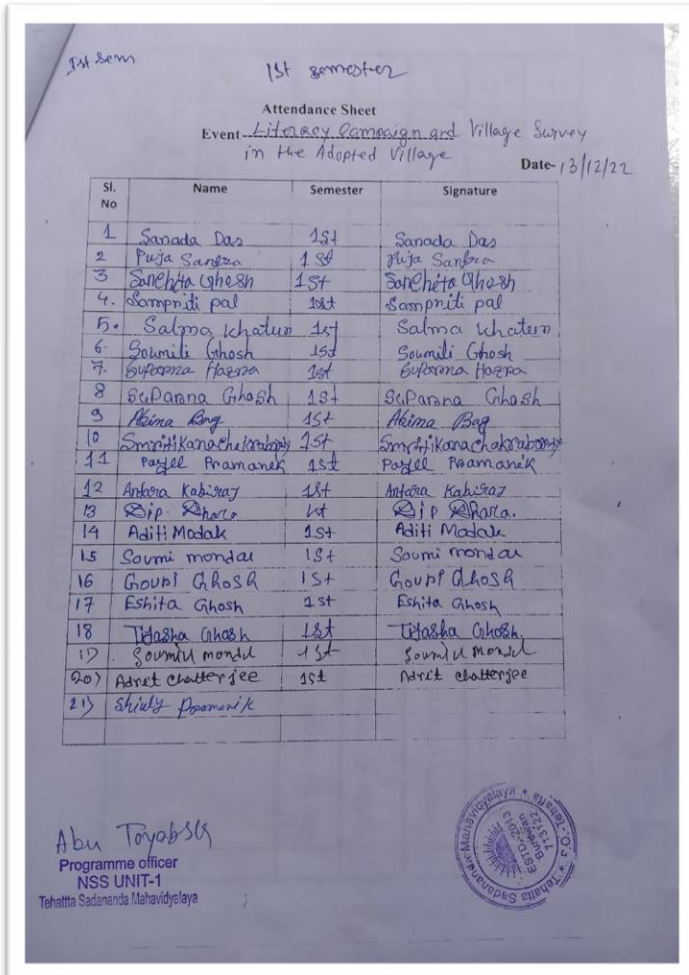 Ist Sem
1st semester
Attendance Sheet
Event- Literacy Campaign and Village Survey
in the Adopted Village
Date- 13/12/22
Sl. No Name Semester Signature
1 Sanada Das 1st Sanada Das
2 Puja Santra 1st Puja Santra
3 Sanchita Ghosh 1st Sanchita Ghosh
4. Sampriti pal 1st Sampriti pal
5. Salma Khatun 1st Salma Khatun
6. Soumili Ghosh 1st Soumili Ghosh
7. Suparna Hazra 1st Suparna Hazra
8 SuParana Ghosh 1st SuParana Ghosh
9 Akima Bag 1st Akima Bag
10 Smritikana chakraborty 1st Smritikana chakraborty
11 Payel Pramanik 1st Payel Pramanik
12 Antara Kabiraj 1st Antara Kabiraj
13 Dip Dhara 1st Dip Dhara.
14 Aditi Modak 1st Aditi Modak
15 Soumi mondal 1st Soumi mondal
16 Goupi Ghosh 1st Goupi Ghosh
17 Eshita Ghosh 1st Eshita Ghosh
18 Titasha Ghosh 1st Titasha Ghosh.
19 Soumili mondal 1st Soumili mondal
20) Adrit chatterjee 1st Adrit chatterjee
21) Shiuly Pramanik
Programme officer
NSS UNIT-1
Tehattta Sadananda Mahavidyalaya
Tehatta Sadananda Mahavidyalaya
ESTD.-2013
Burdwan
713122